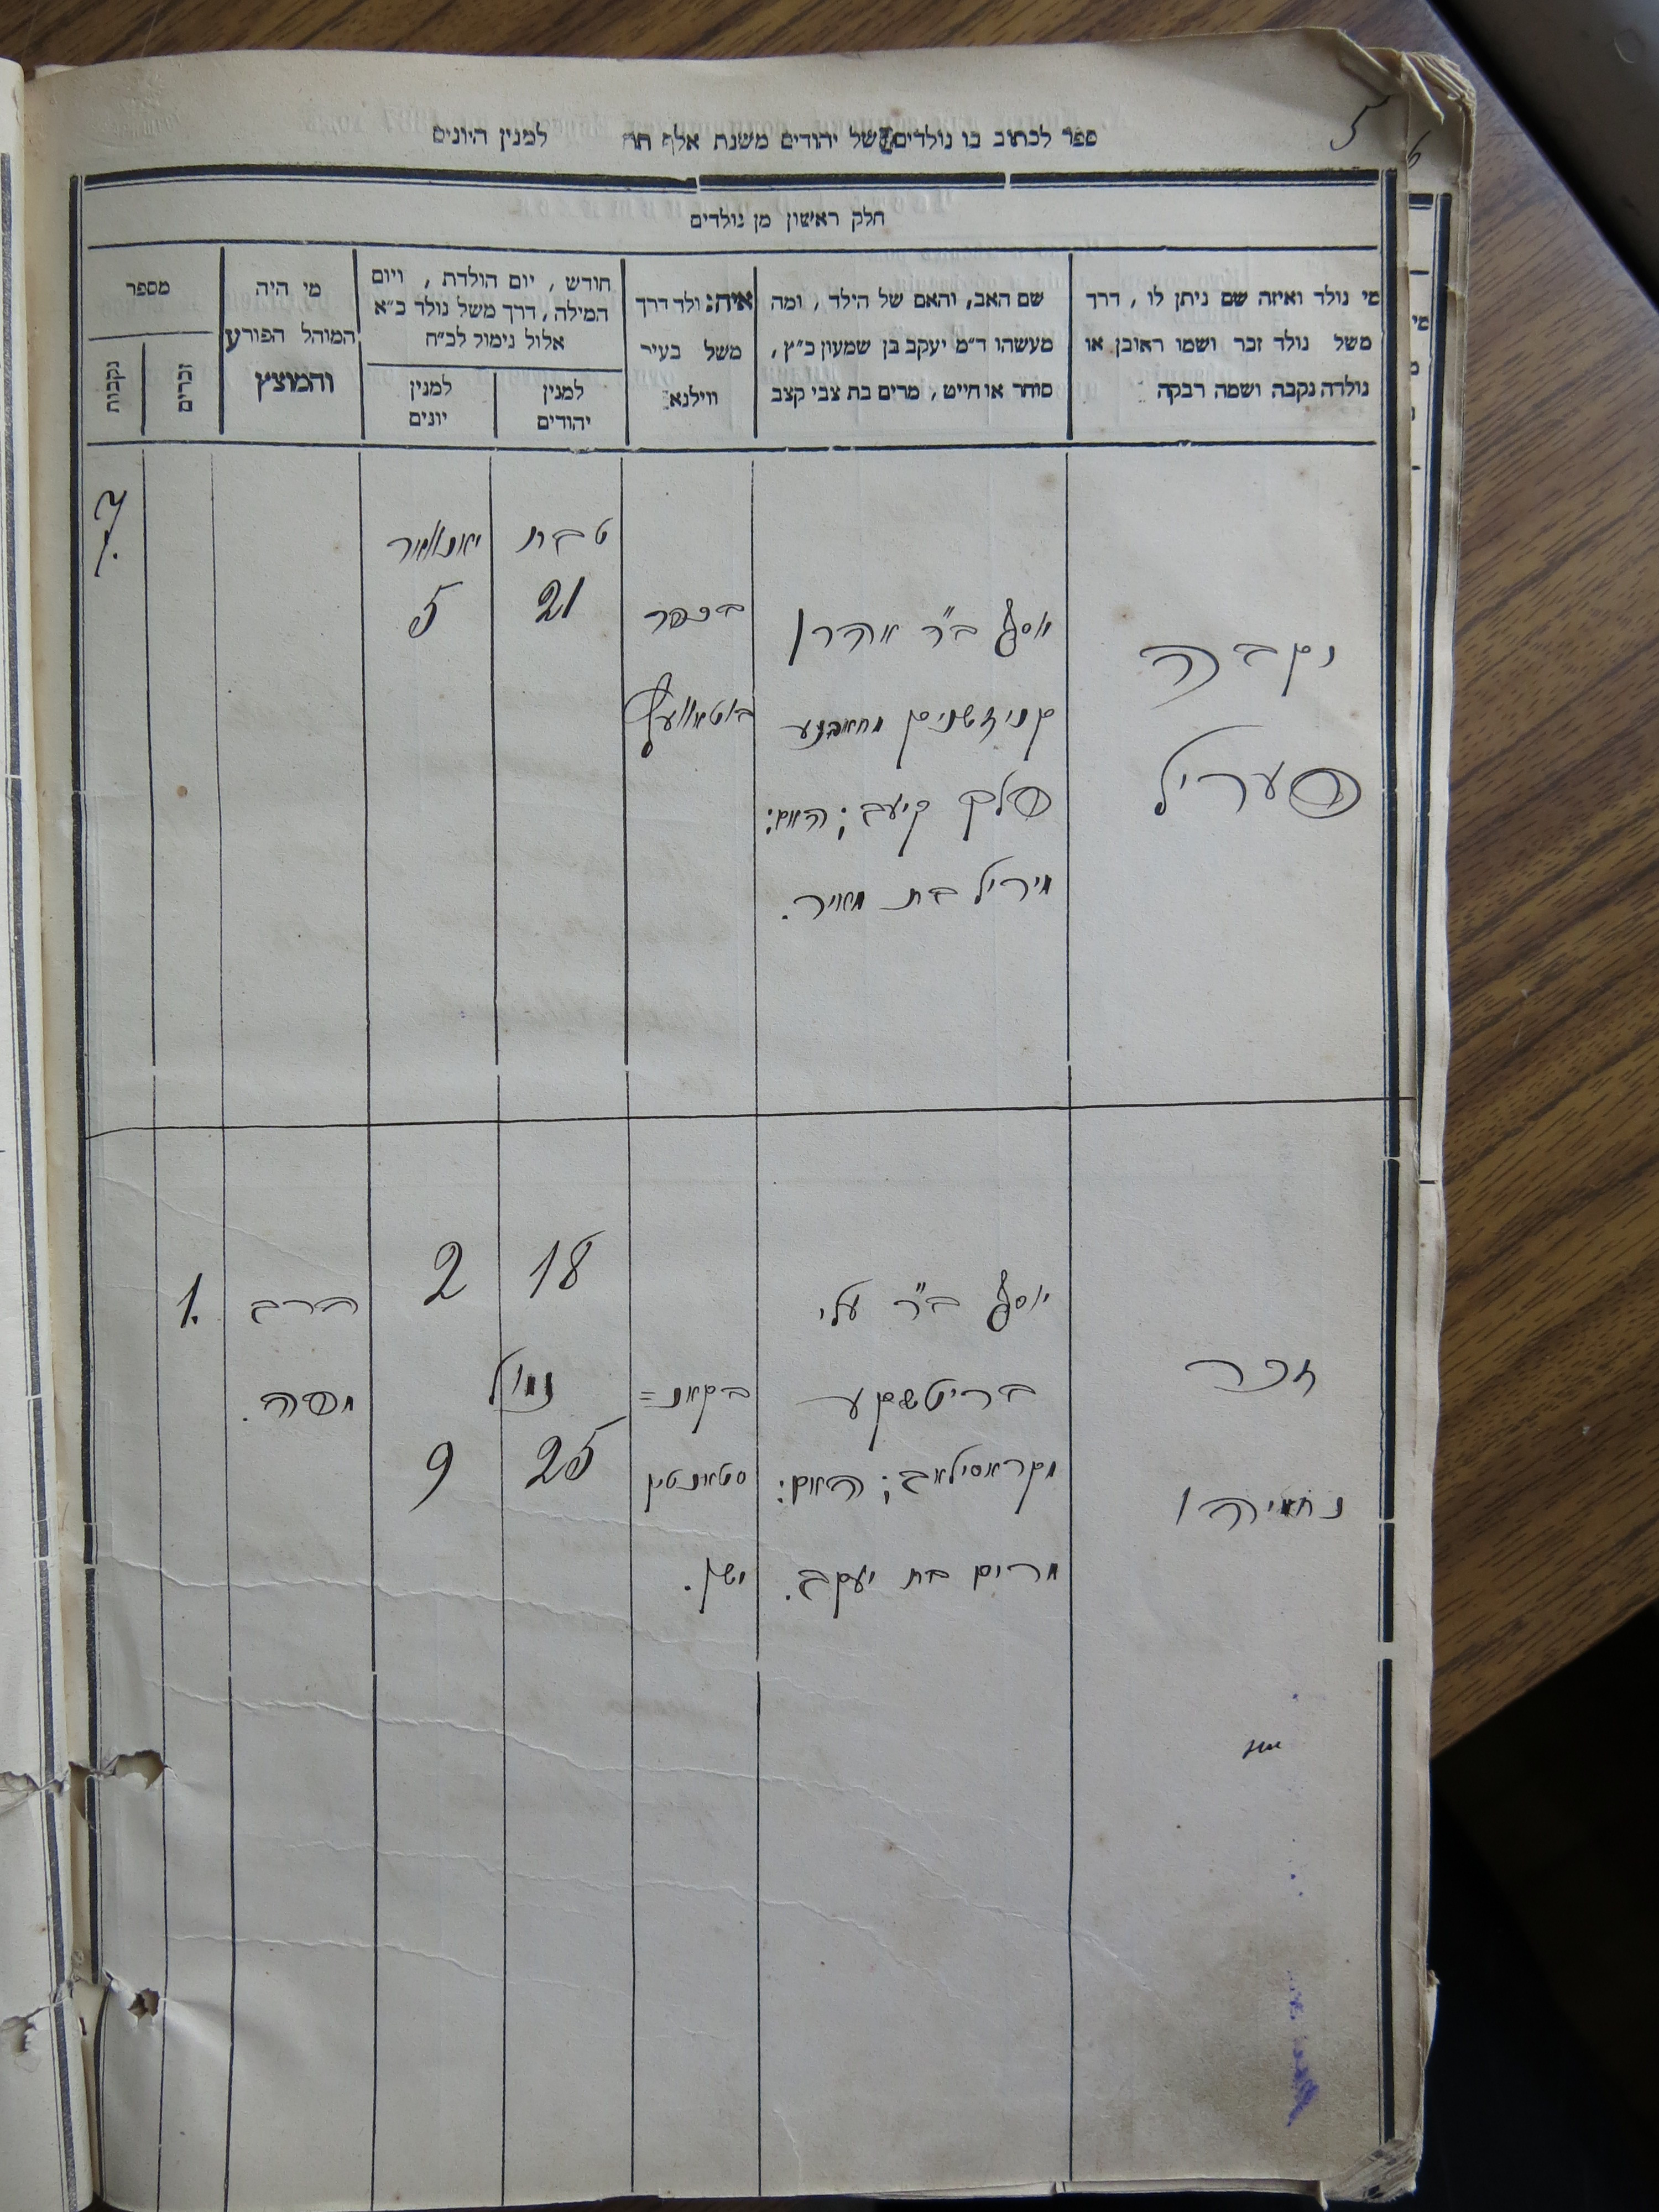 5
6
ספר לכתוב בו נולדים של יהודים משנת אלף תת למנין היונים
חלק ראשון מן נולדים
מי נולד ואיזה שם ניתן לו, דרך
משל נולד זכר ושמו ראובן או
נולדה נקבה ושמה רבקה
שם האב, והאם של הילד, ומה
מעשהו ד״מ יעקב בן שמעון כ״ץ,
סוחר או חייט, מרים בת צבי קצב
איה: ולד דרך
משל בעיר
ווילנא
חודש, יום הולדת, ויום
המילה, דרך משל נולד כ״א
אלול נימול לכ״ח
למנין
יהודים
למנין
יונים
מי היה
המוהל הפורע
והמוצץ
מספר
זכרים
נקבות
נקבה
פעריל
יוסף ב״ר אהרן
מיריל בת מאיר.
בכפר
טבת
21
יאנואר
5
7.
זכר
נחמיה
יוסף ב״ר עלי
בריטשקע
מקראסילאב; האם:
מרים בת יעקב.
בקאנ=
סטאנטין
ישן.
18
2
נמול
25
9
הרב
משה.
1.